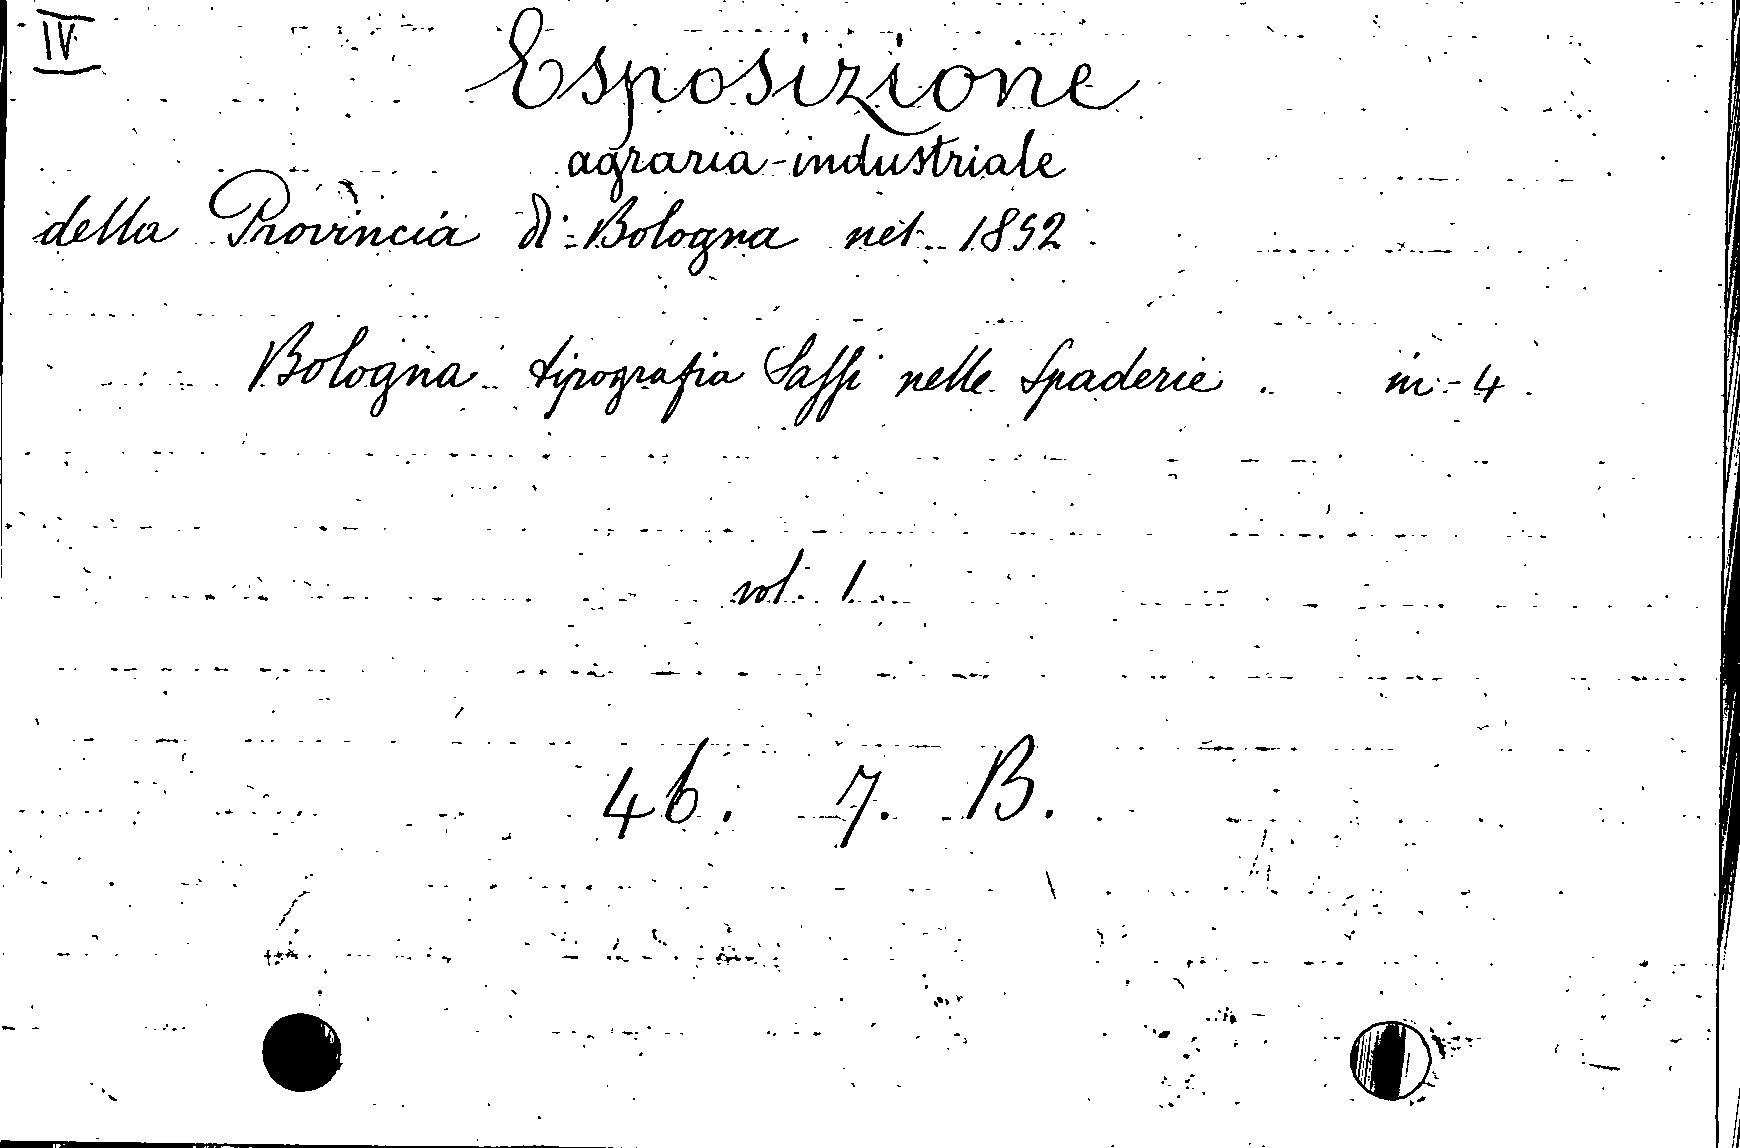 IV
Esposizione
agraria-industriale
della Provincia di Bologna nel 1852
Bologna tipografia Saffi nelle Spaderie. in-4.
vol. 1.
46. 7. B.